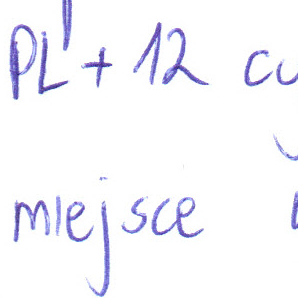 PL + 12 cu
miejsce